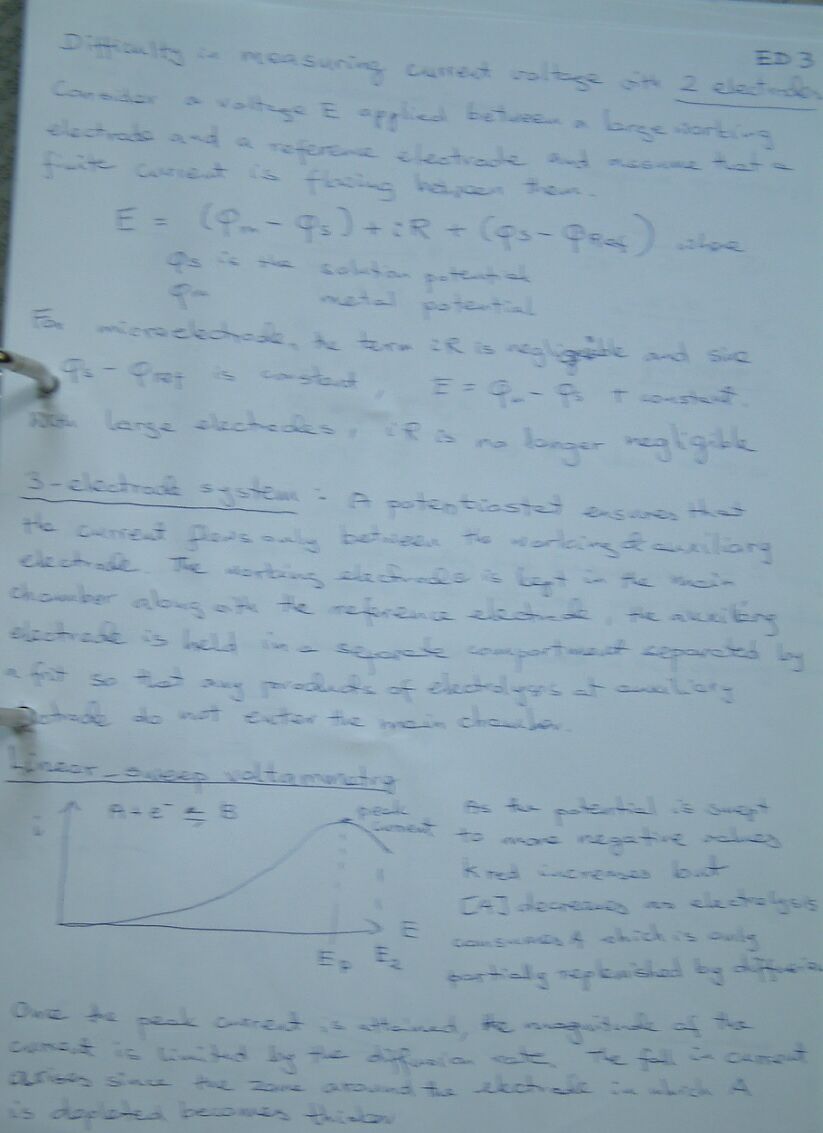 ED 3
Difficulty in measuring current voltage with 2 electrodes
Consider a voltage E applied between a large working
electrode and a reference electrode and assume that a
finite current is flowing between them.
E = (φm − φs) + iR + (φs − φRef) where
φs is the solution potential
φm metal potential
For microelectrode, the term iR is negligible and since
φs − φref is constant, E = φm − φs + constant.
With large electrodes, iR is no longer negligible
3-electrode system: A potentiostat ensures that
the current flows only between the working & auxiliary
electrode. The working electrode is kept in the main
chamber along with the reference electrode, the auxiliary
electrode is held in a separate compartment separated by
a frit so that any products of electrolysis at auxiliary
electrode do not enter the main chamber.
Linear-sweep voltammetry
i
A + e⁻ ⇌ B
peak
current
E
Ep
E2
As the potential is swept
to more negative values
kred increases but
[A] decreases as electrolysis
consumes A which is only
partially replenished by diffusion
Once the peak current is attained, the magnitude of the
current is limited by the diffusion rate. The fall in current
arises since the zone around the electrode in which A
is depleted becomes thicker